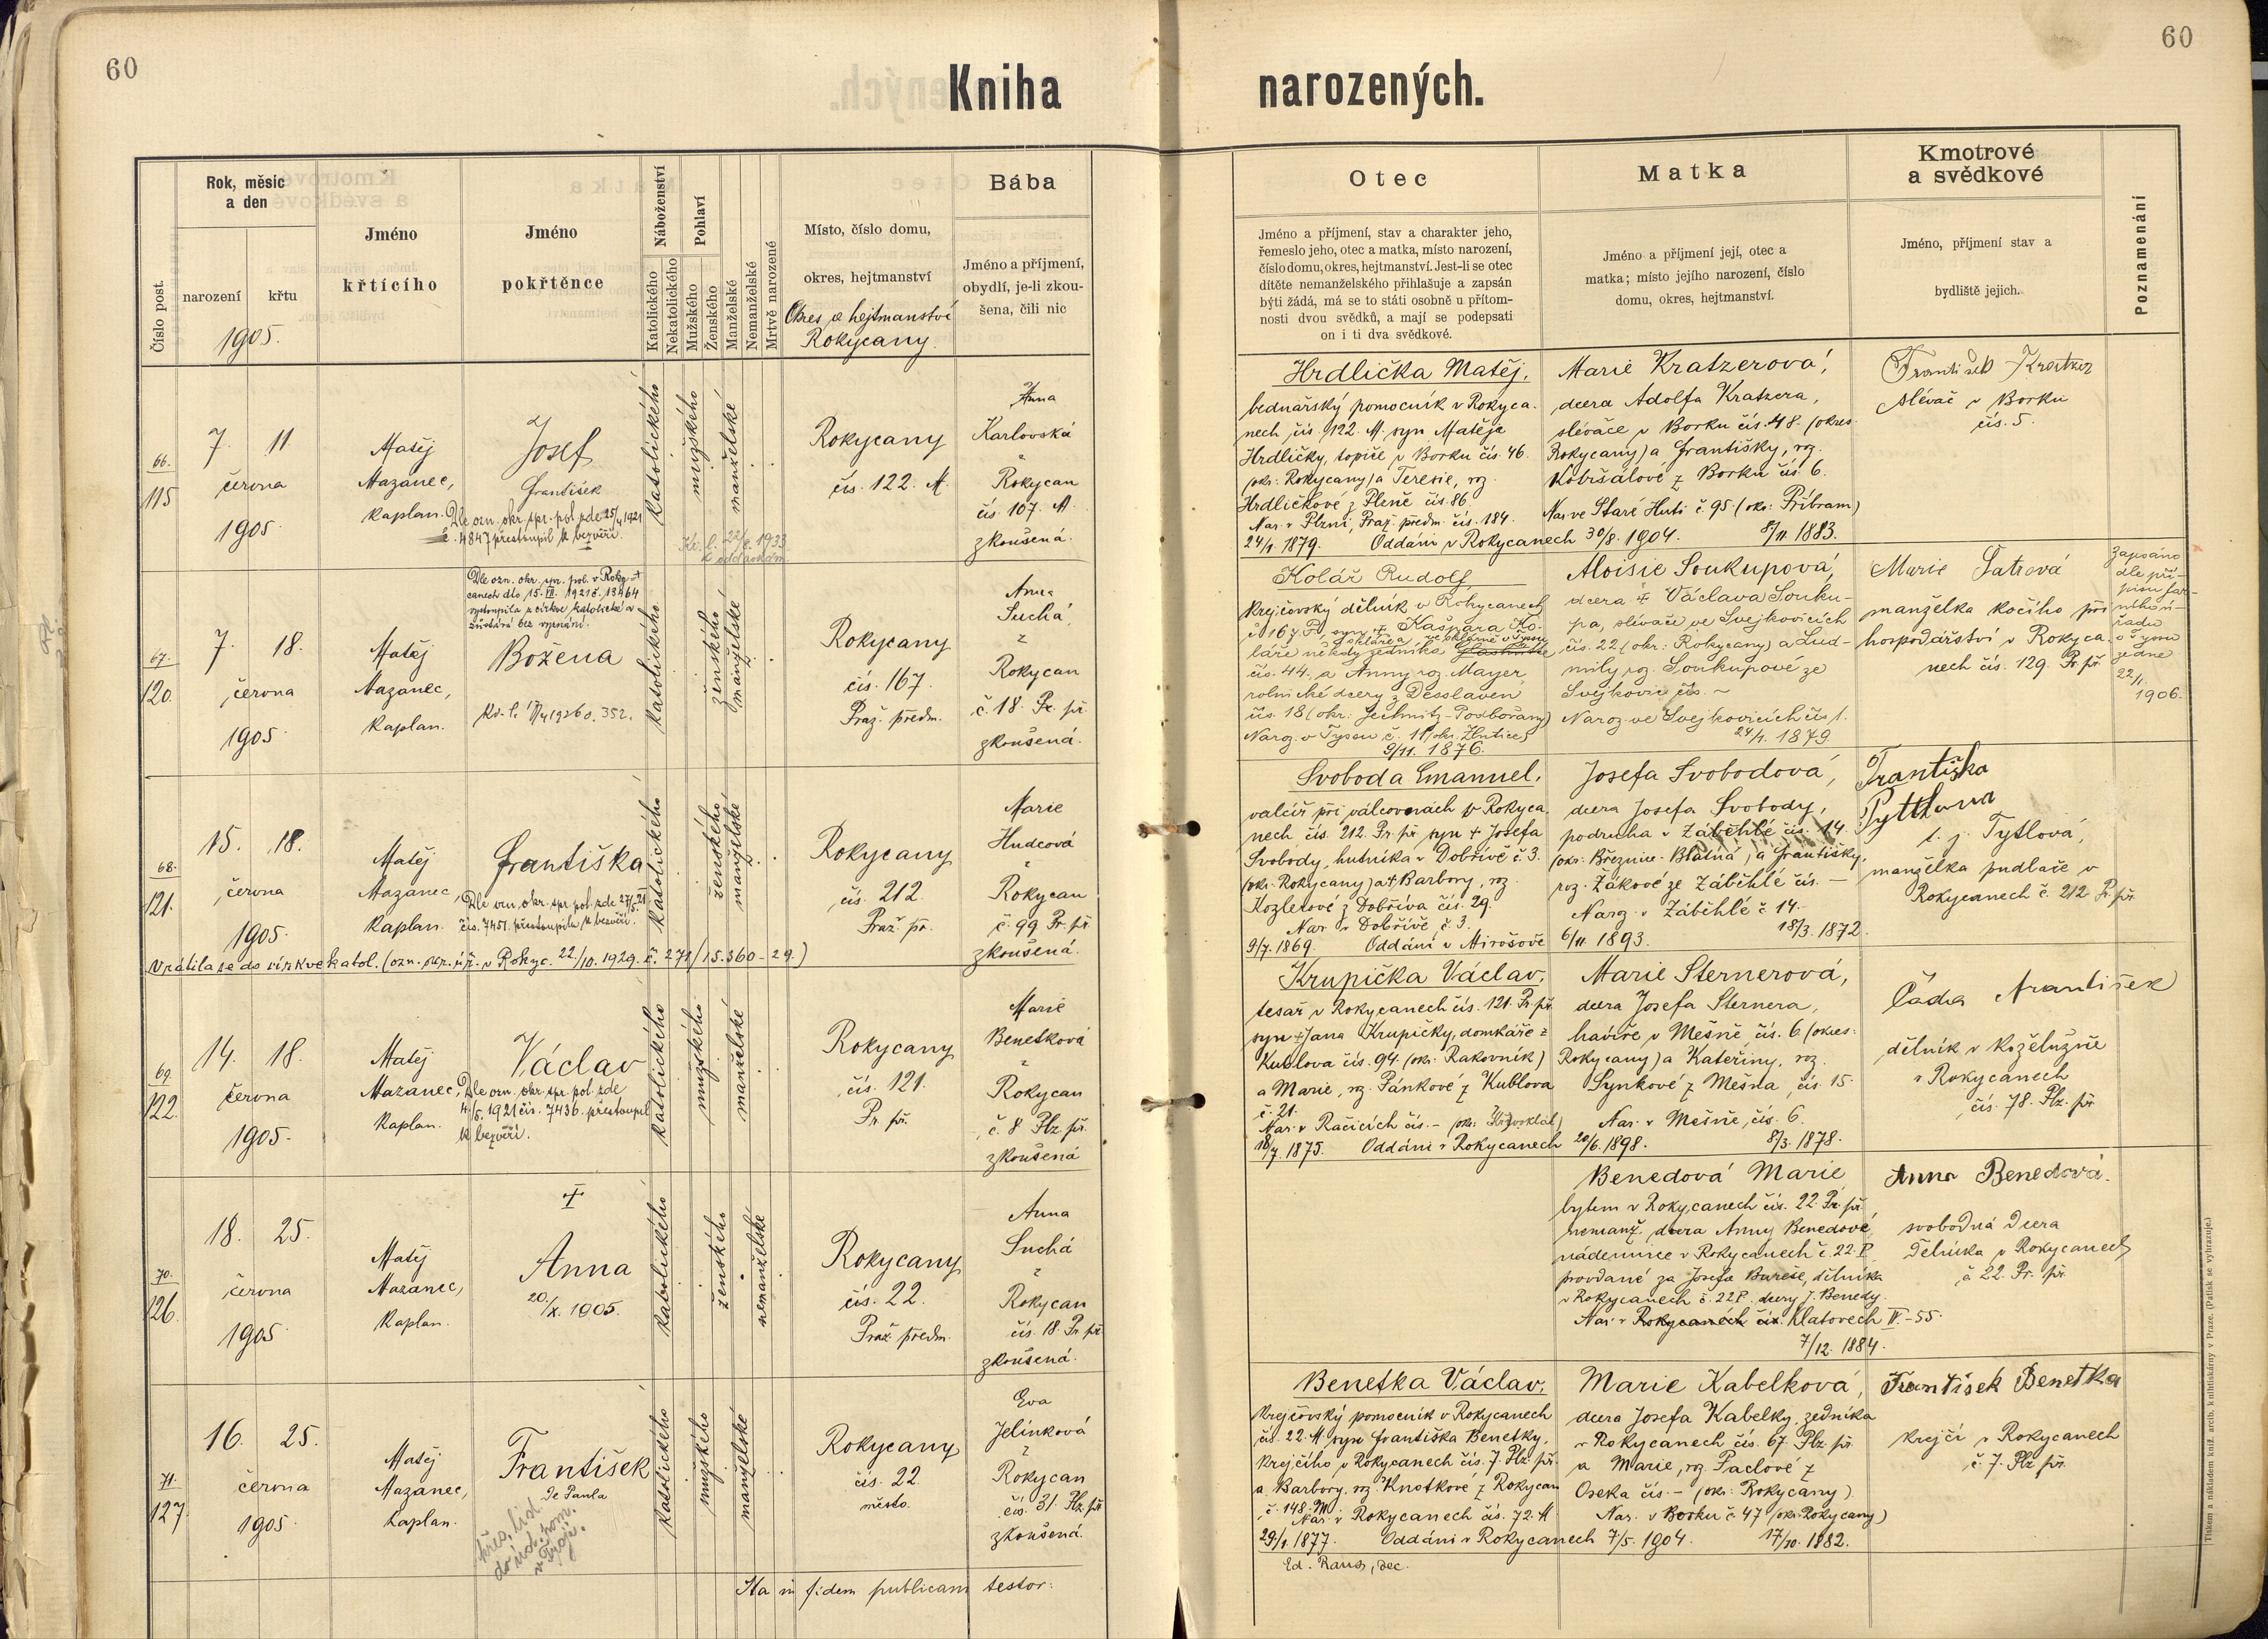 60
60
Kniha
narozených.
Číslo post.
Rok, měsíc
a den
narození
křtu
1905.
Jméno
křtícího
Jméno
pokřtěnce
Náboženství
Katolického
Nekatolického
Pohlaví
Mužského
Ženského
Manželské
Nemanželské
Mrtvě narozené
Místo, číslo domu,
okres, hejtmanství
Okres a hejtmanství
Rokycany.
Bába
Jméno a příjmení,
obydlí, je-li zkou-
šena, čili nic
Otec
Jméno a příjmení, stav a charakter jeho,
řemeslo jeho, otec a matka, místo narození,
číslo domu, okres, hejtmanství. Jest-li se otec
dítěte nemanželského přihlašuje a zapsán
býti žádá, má se to státi osobně u přítom-
nosti dvou svědků, a mají se podepsati
on i ti dva svědkové.
Matka
Jméno a příjmení její, otec a
matka; místo jejího narození, číslo
domu, okres, hejtmanství.
Kmotrové
a svědkové
Jméno, příjmení stav a
bydliště jejich.
Poznamenání
66.
115
7. 11
června
1905.
Matěj
Mazanec,
kaplan.
Josef
František
Dle ozn. okr. spr. pol. zde 25/4 1921
č. 4847 přestoupil k bezvěří.
katolického
mužského
manželské
Rokycany
čís. 122. M.
Anna
Karlovská
z
Rokycan
čís. 107. M.
zkoušená.
Hrdlička Matěj,
bednářský pomocník v Rokyca-
nech čís. 122. M. syn Matěje
Hrdličky, topiče v Borku čís. 46.
(okr. Rokycany) a Terezie, roz.
Hrdličkové z Plené čís. 86.
Nar. v Plzni, Praž. předm. čís. 184.
24/1. 1879. Oddáni v Rokycanech 30/8. 1904.
Marie Kratzerová,
dcera Adolfa Kratzera,
slévače v Borku čís. 48. (okres
Rokycany) a Františky, roz.
Kobšálové z Borku čís. 6.
Nar. ve Staré Huti č. 95 (okr. Příbram)
8/11. 1883.
František Kratzer
slévač v Borku
čís. 5.
67.
120.
7. 18.
června
1905
Matěj
Mazanec,
kaplan.
Dle ozn. okr. spr. pol. v Roky-
canech dto 15. VII. 1921 č. 13464
vystoupila z církve katolické a
zůstává bez vyznání.
Božena
katolického
ženského
manželské
Rokycany
čís. 167.
Praž. předm.
Anna
Suchá,
z
Rokycan
č. 18. Pr. př.
zkoušená.
Kolář Rudolf
krejčovský dělník v Rokycanech
č. 167. Pr., syn + Kašpara Ko-
láře někdy zedníka
čís. 44. a Anny roz. Mayer
rolnické dcery z Desslaven
čís. 18 (okr. Jechnitz-Podbořany)
Naroz. v Tyssu č. 11 (okr. Žlutice)
9/11. 1876.
Aloisie Soukupová,
dcera + Václava Souku-
pa, slévače ve Svejkovicích
čís. 22 (okr. Rokycany) a Lud-
mily roz. Soukupové ze
Svejkovic čís. –
Naroz. ve Svejkovicích čís 1.
24/1. 1879
Marie
manželka kočího při
hospodářství v Rokyca-
nech čís. 129. Pr. př.
Zapsáno
dle pří-
pisu far-
ního ú-
řadu
v Tyssu
ze dne
22/1.
1906.
68.
121.
15. 18.
června
1905.
Matěj
Mazanec,
kaplan.
Františka
Dle ozn. okr. spr. pol. zde 27/5. 21
čís. 7451. přestoupila k bezvěří.
Vrátila se do církve katol. (ozn. okr. úř. v Rokyc. 22/10. 1929. č. 271/15.360-29.)
katolického
ženského
manželské
Rokycany
čís. 212
Praž. př.
Marie
Hudcová
z
Rokycan
č. 99 Pr. př.
zkoušená.
Svoboda Emanuel,
valcíř při válcovnách v Rokyca-
nech čís. 212. Pr. př. syn + Josefa
Svobody, hutníka v Dobřívě č. 3.
(okr. Rokycany) a + Barbory, roz.
Kozlerové z Dobříva čís. 29.
Nar. v Dobřívě, č. 3.
9/7. 1869. Oddáni v Mirošově 6/11. 1893.
Josefa Svobodová,
dcera Josefa Svobody,
podruha v Záběhlé čís. 14.
(okr. Březnice-Blatná) a Františky,
roz. Žákové ze Záběhlé čís. –
Naroz. v Záběhlé č. 14.
18/3. 1872.
Františka
Pyttlova
t. j. Pytlová,
manželka pudlaře v
Rokycanech č. 212 Pr. př.
69.
122.
14. 18.
června
1905.
Matěj
Mazanec,
kaplan.
Václav
Dle ozn. okr. spr. pol. zde
4/5. 1921 čís. 7436. přestoupil
k bezvěří.
katolického
mužského
manželské
Rokycany
čís. 121.
Pr. př.
Marie
Benetková
z
Rokycan
č. 8 Plz. př.
zkoušená
Krupička Václav,
tesař v Rokycanech čís. 121. Pr. př.
syn + Jana Krupičky, domkáře z
Kublova čís. 94. (okr. Rakovník)
a Marie, roz. Pánkové z Kublova
č. 21.
Nar. v Račicích čís. – (okr. Křivoklát)
18/7. 1875. Oddáni v Rokycanech 20/6. 1898.
Marie Sternerová,
dcera Josefa Sternera,
havíře v Mešně, čís. 6 (okres:
Rokycany) a Kateřiny, roz.
Synkové z Mešna, čís. 15.
Nar. v Mešně, čís. 6.
8/3. 1878.
Čada František
dělník v koželužně
v Rokycanech
čís. 78. Plz. př.
70.
126.
18. 25.
června
1905
Matěj
Mazanec,
kaplan.
+
Anna
20./X. 1905.
katolického
ženského
nemanželské
Rokycany
čís. 22.
Praž. předm.
Anna
Suchá
z
Rokycan
čís. 18. Pr. př.
zkoušená.
Benedová Marie
bytem v Rokycanech čís. 22. Pr. př.
nemanž. dcera Anny Benedové,
nádennice v Rokycanech č. 22. P.
provdané za Josefa Bureše, dělníka
v Rokycanech č. 22 P. dcery J. Benedy.
Nar. v Rokycanech čís. Klatovech IV.-55.
7/12. 1884.
Anna Benedová.
svobodná dcera
dělníka v Rokycanech
č. 22. Pr. př.
71.
127.
16. 25.
června
1905.
Matěj
Mazanec,
kaplan.
František
de Paula
katolického
mužského
manželské
Rokycany
čís. 22
město.
Eva
Jelínková
z
Rokycan
čís. 31. Plz. př.
zkoušená.
Benetka Václav,
krejčovský pomocník v Rokycanech
čís. 22. M. syn Františka Benetky,
krejčího v Rokycanech čís. 7. Plz. př.
a Barbory, roz. Knotkové z Rokycan
č. 148. M.
Nar. v Rokycanech čís. 72. M
29/1. 1877. Oddáni v Rokycanech 7/5. 1904.
Marie Kabelková,
dcera Josefa Kabelky, zedníka
v Rokycanech čís. 67. Plz. př.
a Marie, roz. Paclové z
Oseka čís. – (okr. Rokycany)
Nar. v Borku č. 47 (okr. Rokycany)
17/10. 1882.
František Benetka
krejčí v Rokycanech
č. 7. Plz. př.
Ita in fidem publicam testor:
Ed. Raus, dec.
Tiskem a nákladem kníž. arcib. knihtiskárny v Praze. (Patisk se vyhrazuje.)